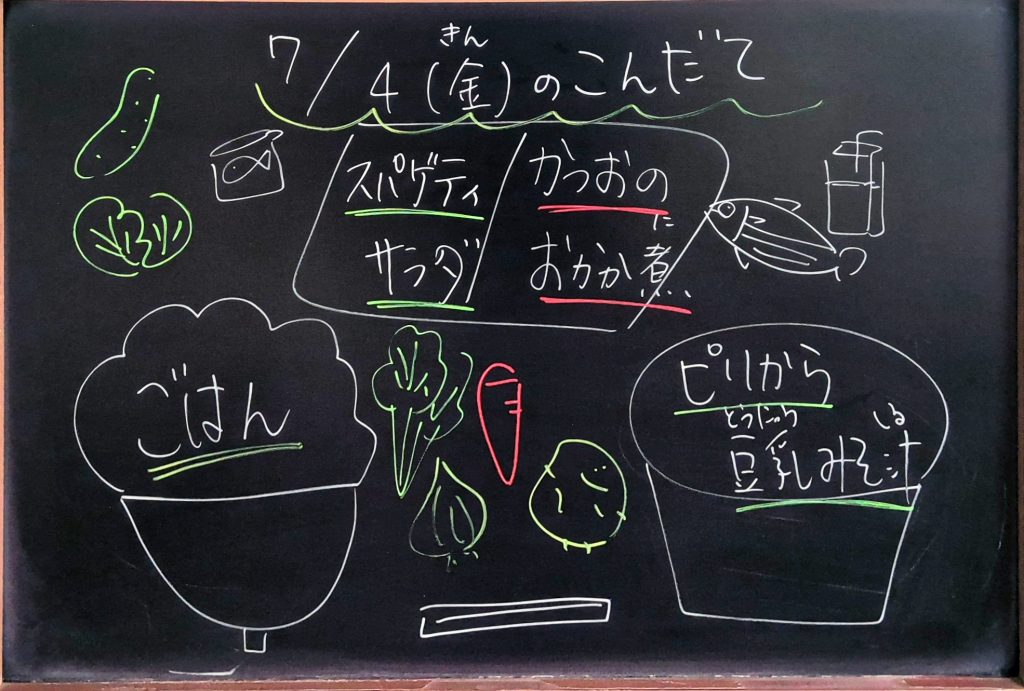 きん
7/4(金)のこんだて
スパゲティ
サラダ
かつおの
に
おかか煮
ごはん
ピリから
とうにゅう しる
豆乳みそ汁